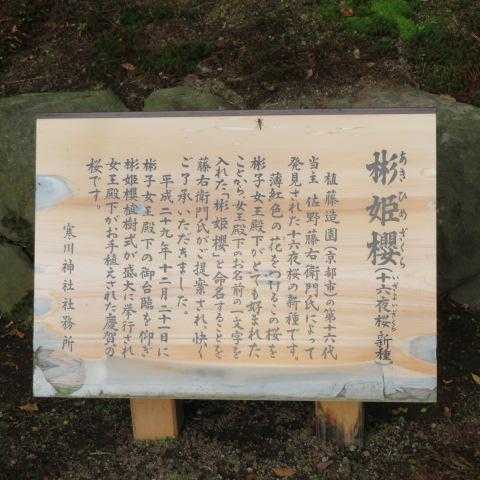 彬姫櫻(十六夜桜 新種)
あきひめざくら
いざよいざくら
植藤造園(京都市)の第十六代
当主 佐野藤右衛門氏によって
発見された十六夜桜の新種です。
薄紅色の花をつけるこの桜を
彬子女王殿下がとても好まれた
ことから女王殿下のお名前の一文字を
入れた、「彬姫櫻」と命名することを
藤右衛門氏がご提案され、快く
ご了承いただきました。
平成二十九年十二月二十一日に
彬子女王殿下の御台臨を仰ぎ
彬姫櫻植樹式が盛大に挙行され
女王殿下がお手植えされた慶賀の
桜です。
寒川神社社務所